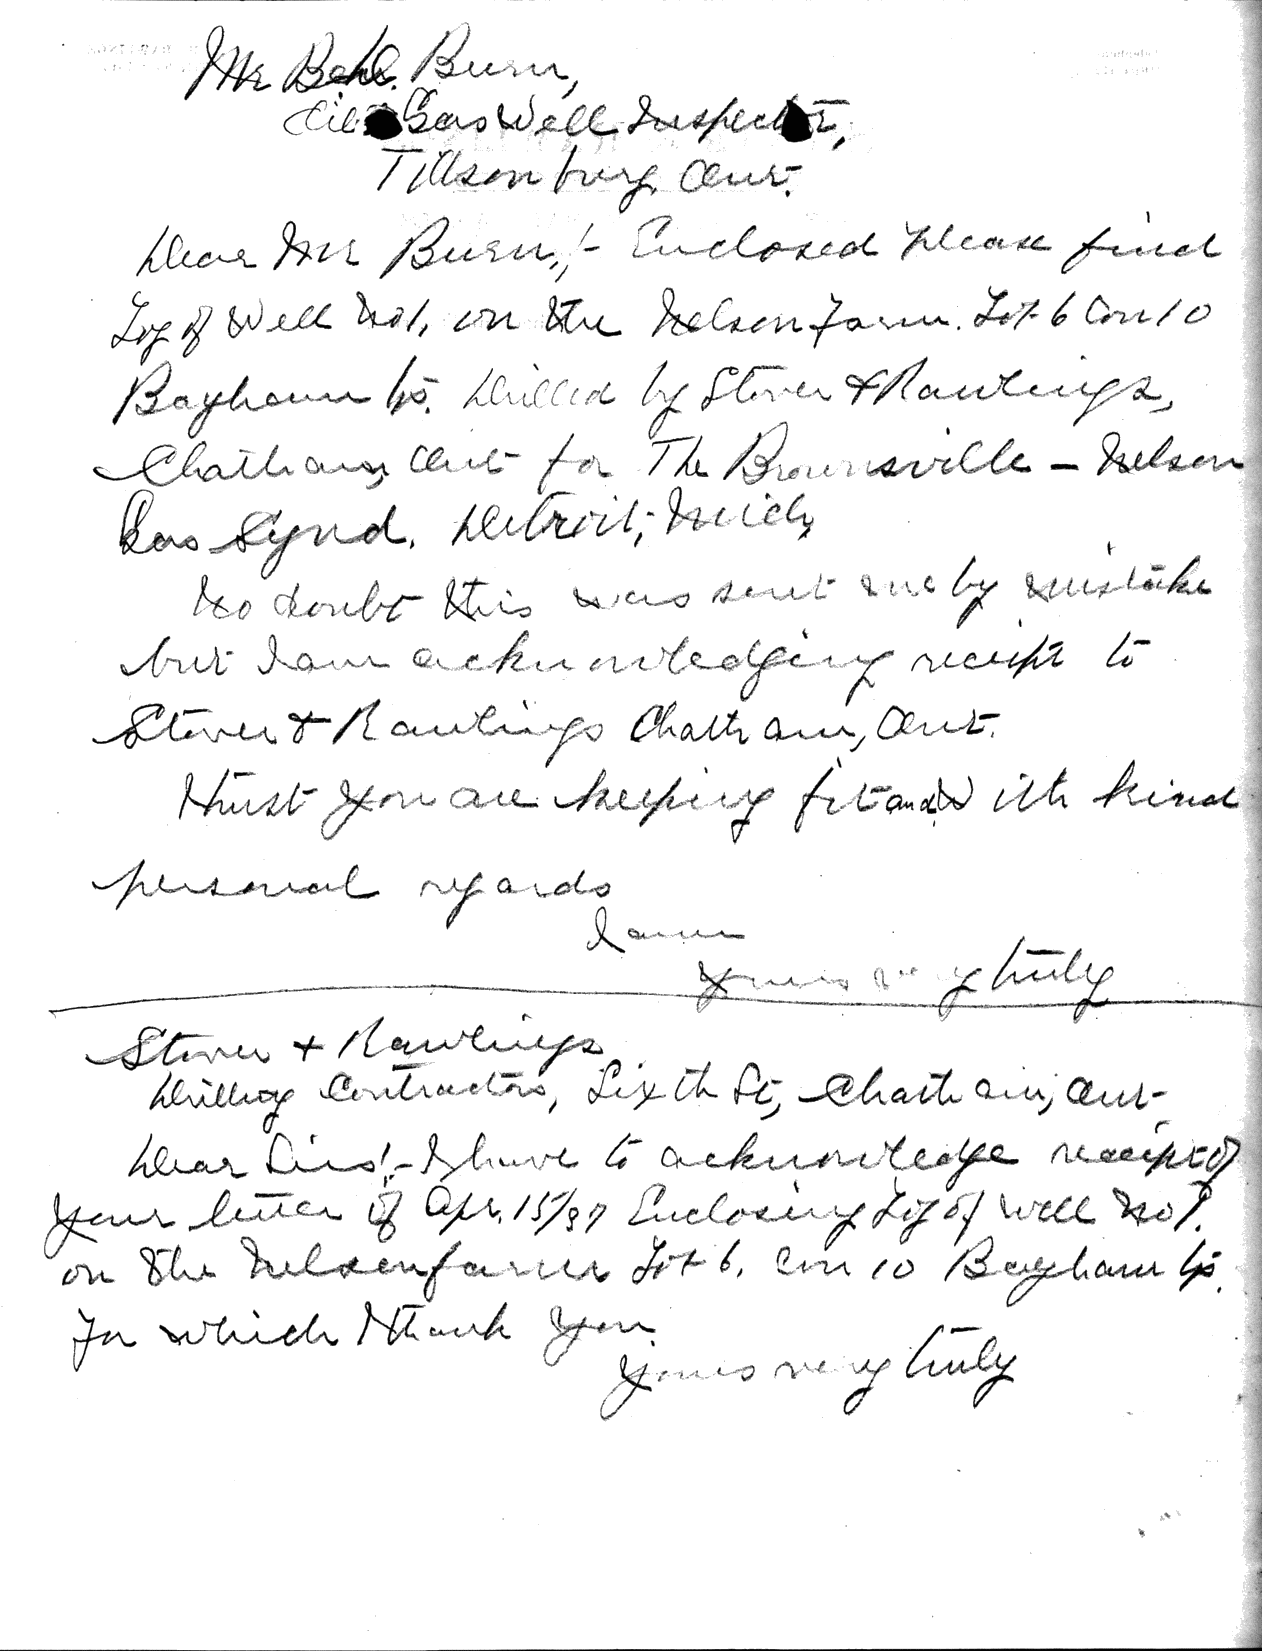 Mr Burn,
Oil & Gas Well Inspector,
Tillsonburg, Ont.
Dear Mr Burn,!- Enclosed please find
Log of Well No 1, on the Nelson Farm. Lot 6 Con 10
Bayham Tp. Drilled by Stover & Rawlings,
Chatham, Ont for The Brownsville - Nelson
Gas Synd. Detroit, Mich,
No doubt this was sent me by mistake
but I am acknowledging receipt to
Stover & Rawlings Chatham, Ont.
Trust you are keeping fit and With kind
personal regards
I am
Yours very truly
Stover + Rawlings
Drilling Contractors, Sixth St, Chatham, Ont-
Dear Sirs!- I have to acknowledge receipt of
your letter of Apr. 15/37 Enclosing Log of Well No 1.
on the Nelson farm Lot 6. Con 10 Bayham Tp.
for which I thank you.
Yours very truly